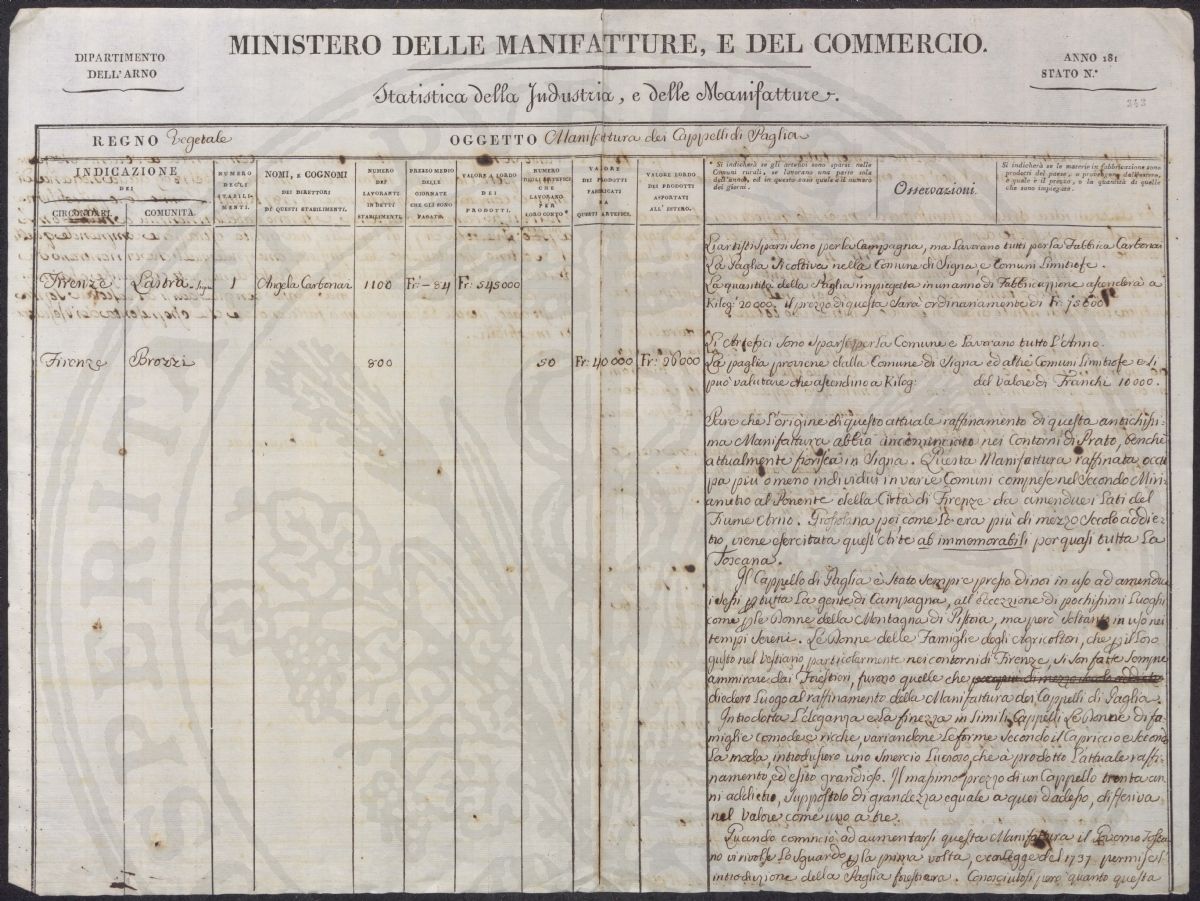 DIPARTIMENTO
DELL'ARNO
MINISTERO DELLE MANIFATTURE, E DEL COMMERCIO.
Statistica della Industria, e delle Manifatture.
ANNO 181
STATO N.º
243
REGNO Vegetale
OGGETTO Manifattura dei Cappelli di Paglia
INDICAZIONE
DEI
CIRCONDARI.
COMUNITÀ.
NUMERO
DEGLI
STABILI-
MENTI.
NOMI, E COGNOMI
DEI DIRETTORI
DI QUESTI STABILIMENTI.
NUMERO
DEI
LAVORANTI
IN DETTI
STABILIMENTI.
PREZZO MEDIO
DELLE
GIORNATE
CHE GLI SONO
PAGATE.
VALORE A LORDO
DEI
PRODOTTI.
NUMERO
DEGLI ARTEFICI
CHE
LAVORANO
PER
LORO CONTO*
VALORE
DEI PRODOTTI
FABBRICATI
DA
QUESTI ARTEFICI.
VALORE LORDO
DEI PRODOTTI
ASPORTATI
ALL'ESTERO.
* Si indicherà se gli artefici sono sparsi nelle
Comuni rurali, se lavorano una parte sola
dell'anno, ed in questo caso quale è il numero
dei giorni.
Osservazioni.
Si indicherà se le materie in fabbricazione sono
prodotti del paese, o provengono dall'estero,
e quale è il prezzo, o la quantità di quelle
che sono impiegate.
Firenze Lastra Signa 1 Angela Carbonai 1100 Fr: - 84 Fr: 545000
Li artisti sparsi sono per la Campagna, ma Lavorano tutti per la Fabbrica Carbonai
La Paglia si coltiva nella Comune di Signa e Comuni Limitrofe.
La quantità della Paglia impiegata in un anno di Fabbricazione ascenderà a
Kilog: 20000. il prezzo di questa sarà ordinariamente di Fr:
Firenze Brozzi 800 50 Fr: 40000 Fr: 26000
Li Artefici sono sparsi per la Comune e Lavorano tutto L'Anno.
La paglia proviene dalla Comune di Signa ed altre Comuni Limitrofe e si
può valutare che ascendino a Kilog: del valore di Franchi 10000.
Pare che L'origine di questo attuale raffinamento di questa antichissi-
ma Manifattura abbia incominciato nei Contorni di Prato, benchè
attualmente fiorisca in Signa. Questa Manifattura raffinata occu
pa più o meno individui in varie Comuni comprese nel Secondo Miri-
ametro al Ponente della Città di Firenze da amendue i Lati del
Fiume Arno. Grossolana poi, come Lo era più di mezzo Secolo addie-
tro, viene esercitata quest'Arte ab immemorabili per quasi tutta La
Toscana.
Il Cappello di Paglia è Stato sempre presso di noi in uso ad amendue
i sessi p tutta La gente di Campagna, all'eccezzione di pochissimi Luoghi
come p le Donne della Montagna di Pistoia, ma però soltanto in uso nei
tempi sereni. Le Donne delle Famiglie degli Agricoltori, che p il Loro
gusto nel Vestiario, particolarmente nei contorni di Firenze, si son fatte sempre
ammirare dai Forestieri, furono quelle che
diedero Luogo al raffinamento della Manifattura dei Cappelli di Paglia.
Introdotta L'eleganza e la finezza in simili Cappelli Le Donne di fa-
miglie comode e ricche, variandone Le forme secondo il Capriccio e secondo
La moda, introdussero uno smercio Lucroso, che à prodotto L'attuale raffi-
namento, ed esito grandioso. Il massimo prezzo di un Cappello trenta an
ni addietro, suppostolo di grandezza eguale a quei d'adesso, differiva
nel valore come uno a tre.
Quando cominciò ad aumentarsi questa Manifattura il Governo Tosca
no vi rivolse Lo sguardo p la prima volta, e con legge del 1737 permise l'
introduzione della Paglia forestiera. Conosciutosi però quanto questa